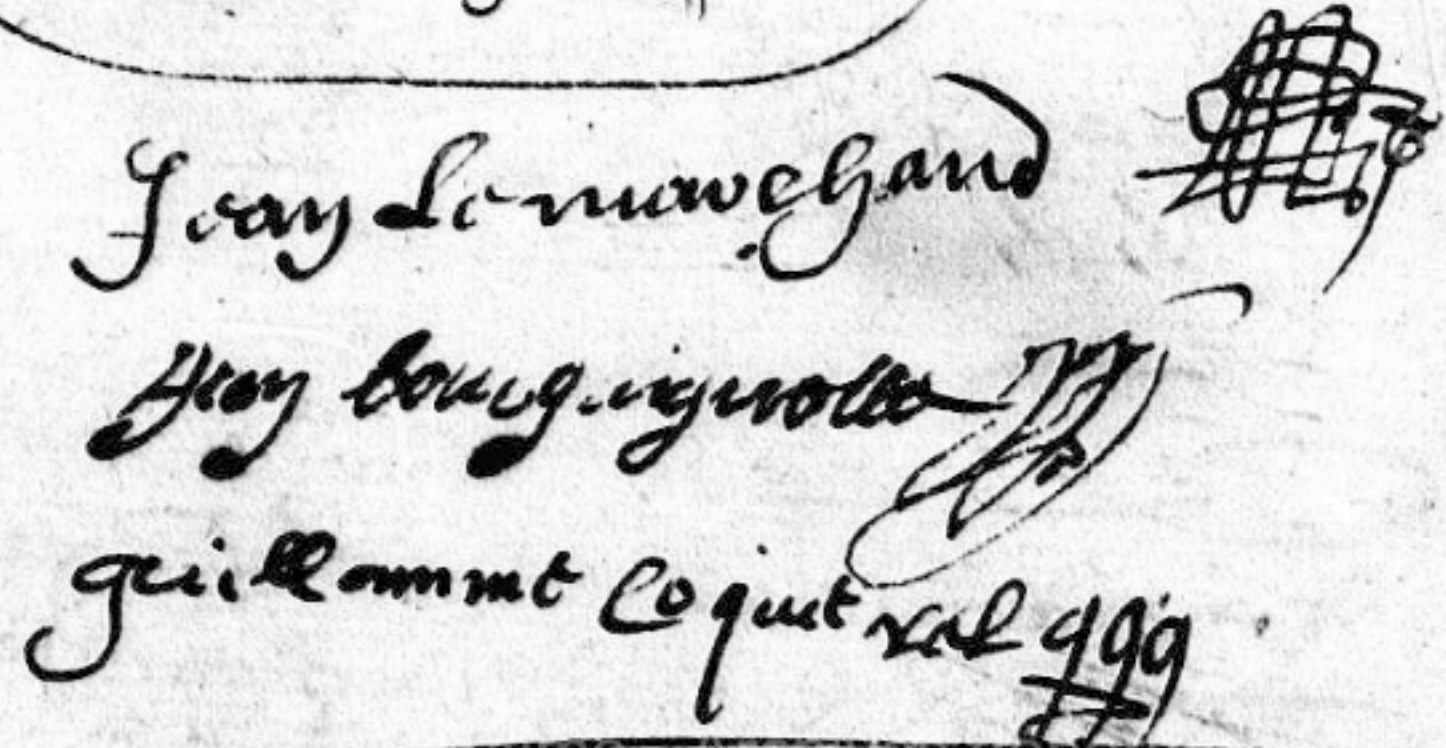 Jean Le marchand
Jean bourguignolle
guillaumme Coquet